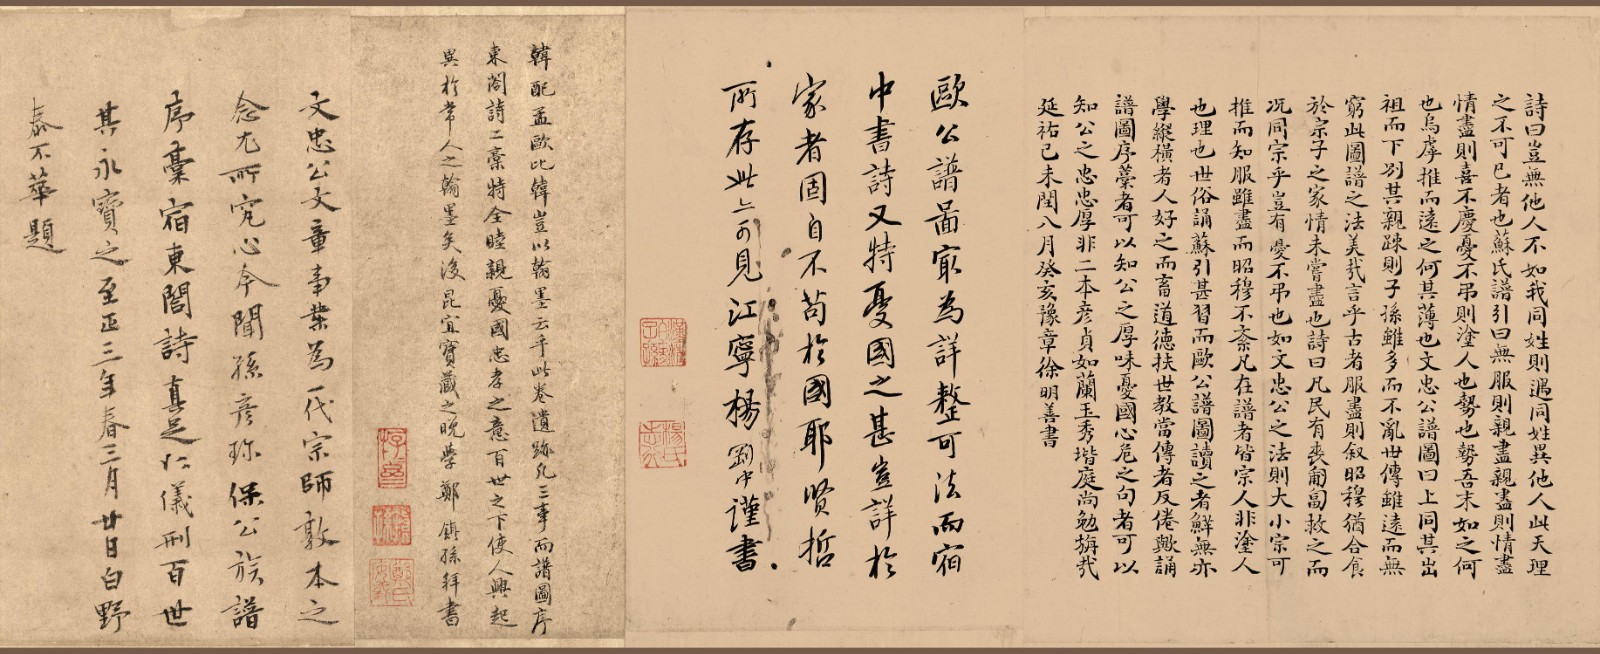 詩曰豈無他人不如我同姓則遇同姓異他人此天理
之不可已者也蘇氏譜引曰無服則親盡親盡則情盡
情盡則喜不慶憂不弔則塗人也勢也勢吾未如之何
也烏虖推而遠之何其薄也文忠公譜圖曰上同其出
祖而下別其親踈則子孫雖多而不亂世傳雖遠而無
窮此圖譜之法美哉言乎古者服盡則叙昭穆猶合食
於宗子之家情未嘗盡也詩曰凡民有喪匍匐救之而
况同宗乎豈有憂不弔也如文忠公之法則大小宗可
推而知服雖盡而昭穆不紊凡在譜者皆宗人非塗人
也理也世俗誦蘇引甚習而歐公譜圖讀之者鮮無亦
學縱橫者人好之而畜道德扶世教當傳者反倦歟誦
譜圖序藁者可以知公之厚味憂國心危之句者可以
知公之忠忠厚非二本彦貞如蘭玉秀堦庭尚勉旃哉
延祐己未閏八月癸亥豫章徐明善書
歐公譜啚㝡為詳整可法而宿
中書詩又特憂國之甚豈詳於
家者固自不苟於國耶賢哲
所存此亦可見江寧楊剛中謹書
韓配孟歐比韓豈以翰墨云乎此卷遺跡凡三事而譜圖序
東閣詩二藁特全睦親憂國忠孝之意百世之下使人興起
異於常人之翰墨矣後昆宜寶藏之晚學鄭鎛孫拜書
文忠公文章事業為一代宗師敦本之
念尤所究心今聞孫彦珎保公族譜
序藁宿東閣詩真足以儀刑百世
其永寶之至正三年春三月廿日白野
泰不華題